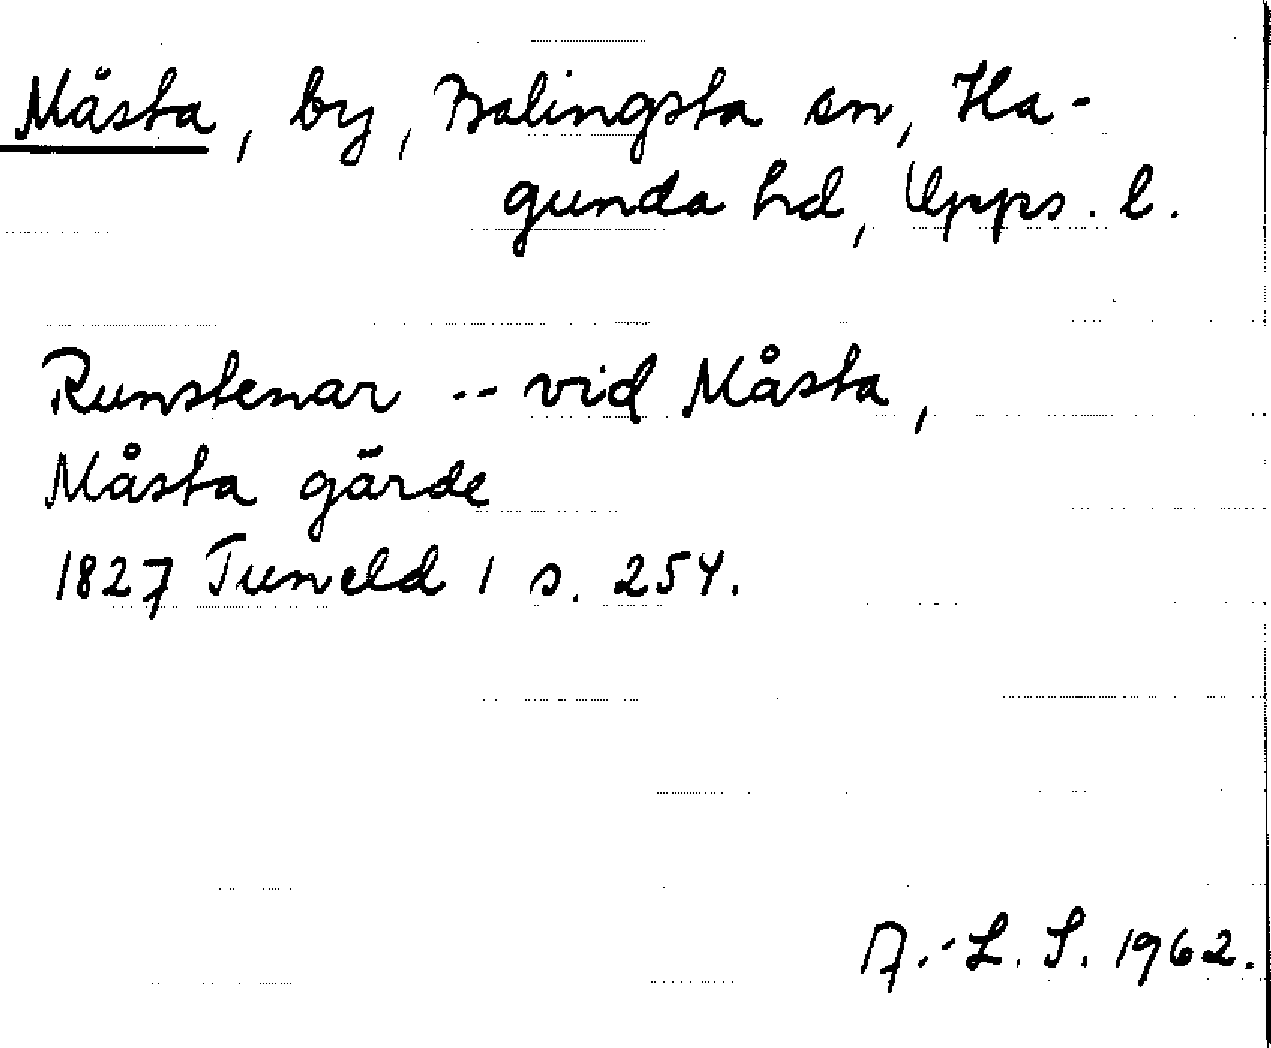 Måsta, by, Balingsta sn, Ha-
gunda hd, Upps. l.
Runstenar -- vid Måsta,
Måsta gärde
1827 Tuneld 1 s. 254.
A.-L. S. 1962.